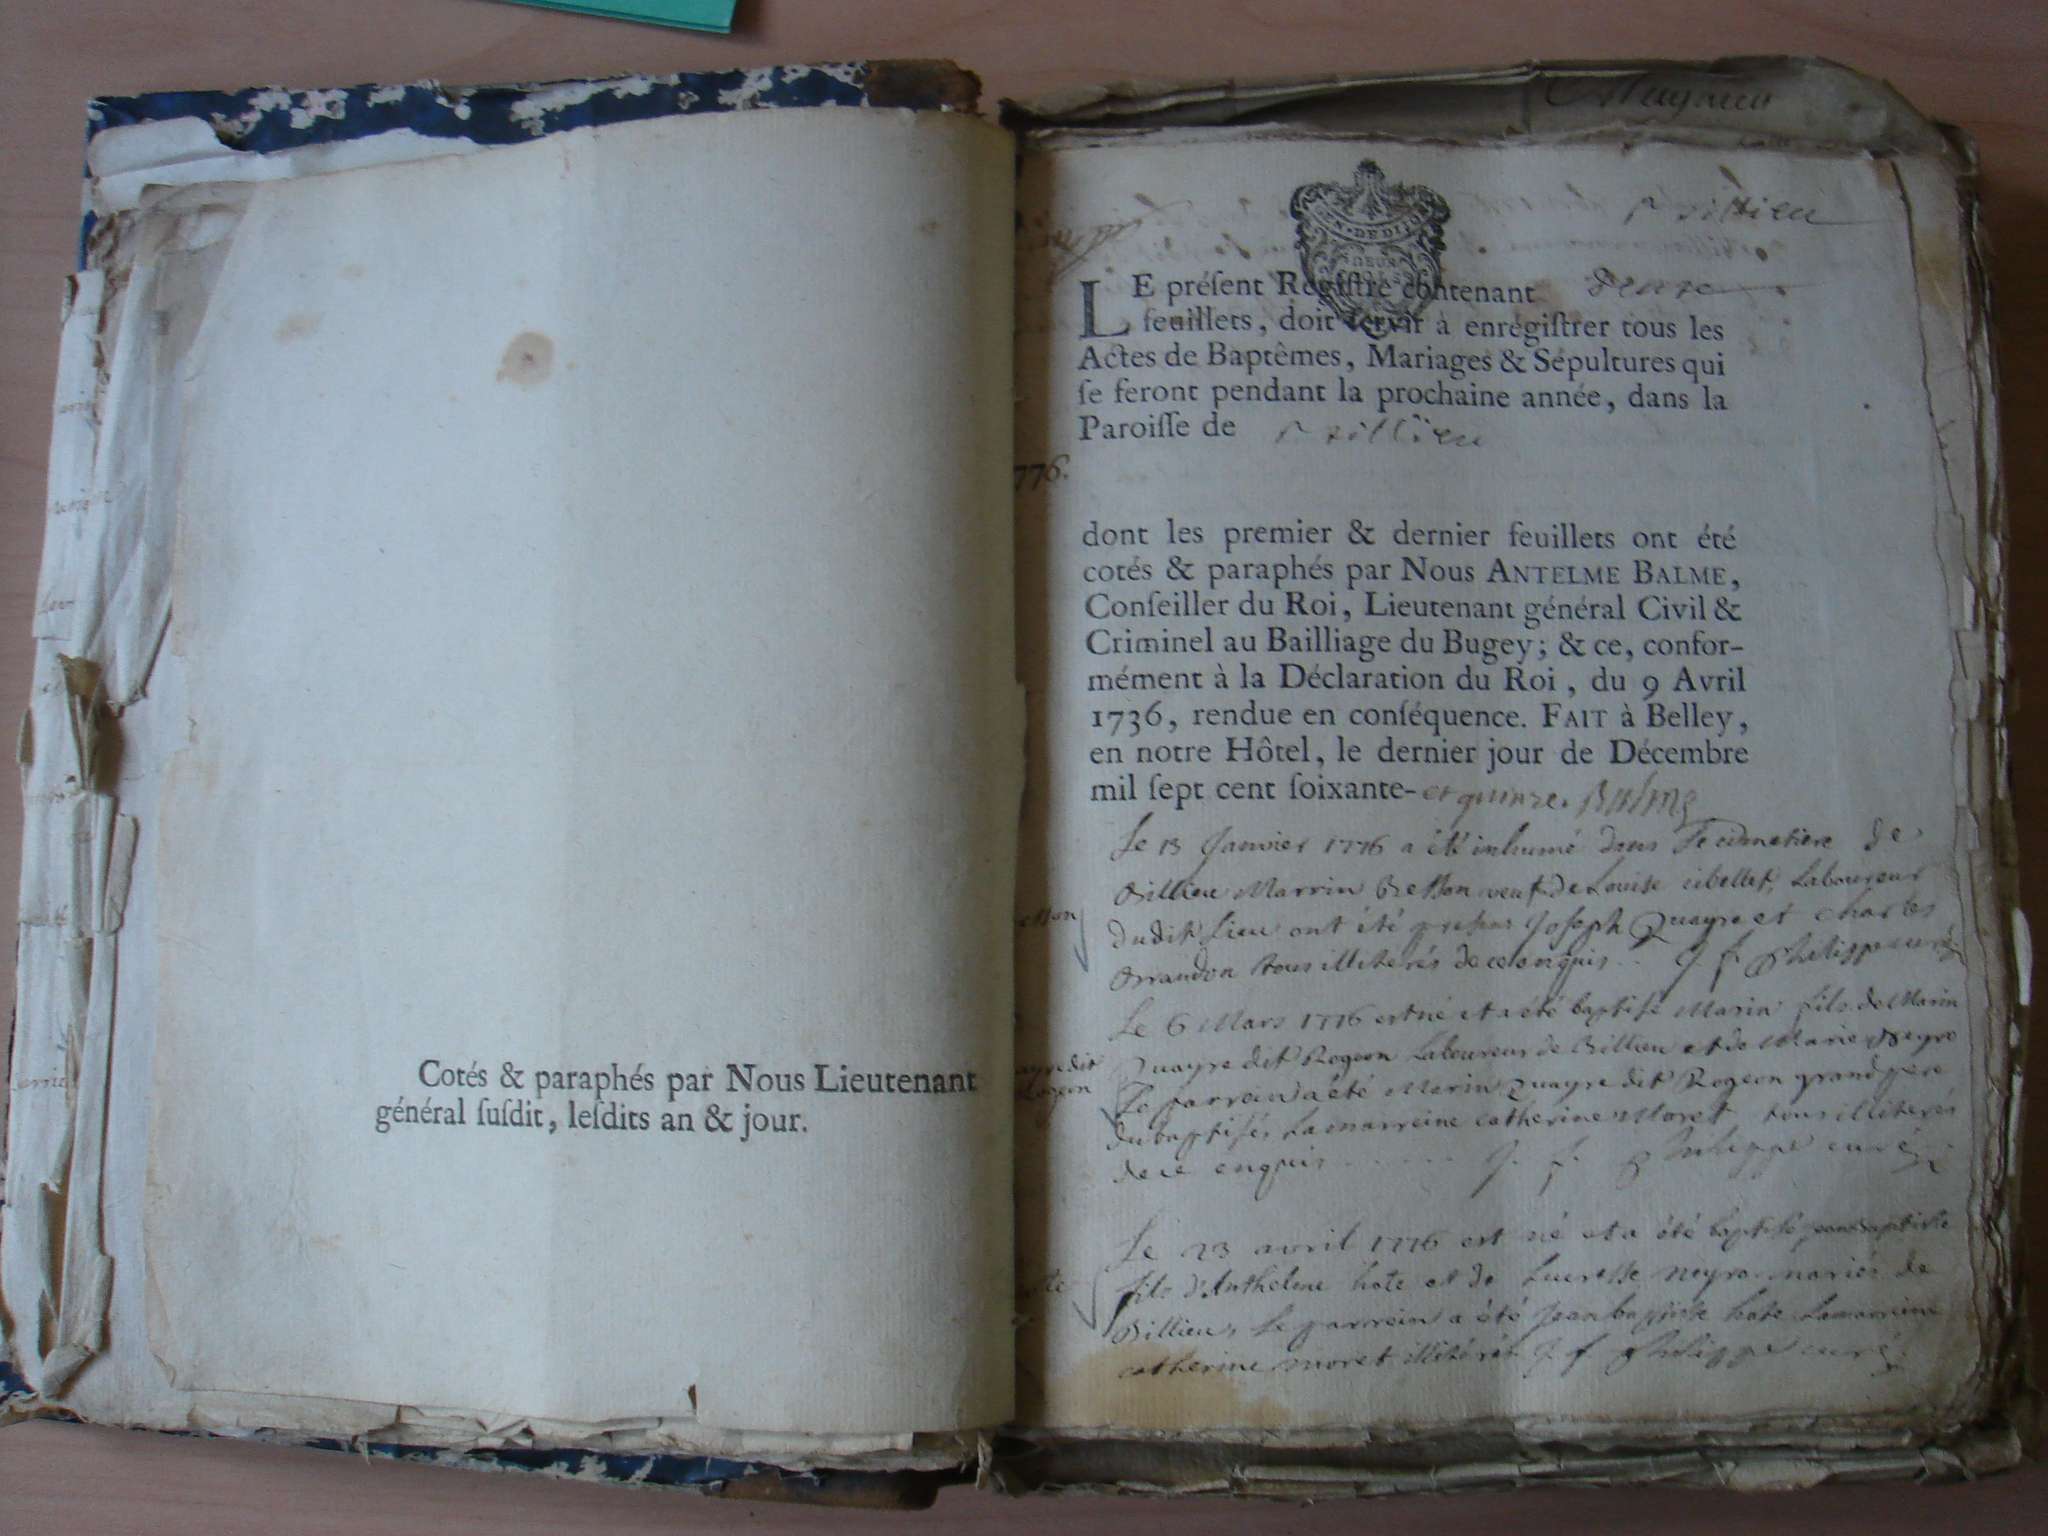 Cotés & paraphés par Nous Lieutenant
général ſuſdit, leſdits an & jour.
GEN. DE DI
LE préſent Regiſtre contenant
feuillets, doit ſervir à enrégiſtrer tous les
Actes de Baptêmes, Mariages & Sépultures qui
ſe feront pendant la prochaine année, dans la
Paroiſſe de
776.
dont les premier & dernier feuillets ont été
cotés & paraphés par Nous ANTELME BALME,
Conſeiller du Roi, Lieutenant général Civil &
Criminel au Bailliage du Bugey; & ce, confor-
mément à la Déclaration du Roi, du 9 Avril
1736, rendue en conſéquence. FAIT à Belley,
en notre Hôtel, le dernier jour de Décembre
mil ſept cent ſoixante- et quinze. Balme
Le 13 Janvier 1776 a été inhumé dans le cimetière de
Billieu Marin veuf de Louise Laboureur
dudit Lieu ont été Joseph Quayre et charles
tous illiterés de ce enquis .. J. f. Philippe curé
Le 6 Mars 1776 est né et a été baptisé Marin fils de Marin
ayre dit
Quayre dit Rogeon Laboureur de Billieu et de Marie Neyro
Rogeon
Le parrein a été Marin Quayre dit Rogeon grand pere
du baptisé, La marreine catherine Moret tous illiterés
de ce enquis ...... J. f. Philippe curé
Le 23 avril 1776 est né et a été baptisé jean baptiste
fils d'Anthelme hote et de Lucresse neyro mariés de
Billieu, Le parrein a été jean baptiste hote La marreine
catherine moret illiterés J. f. Philippe curé